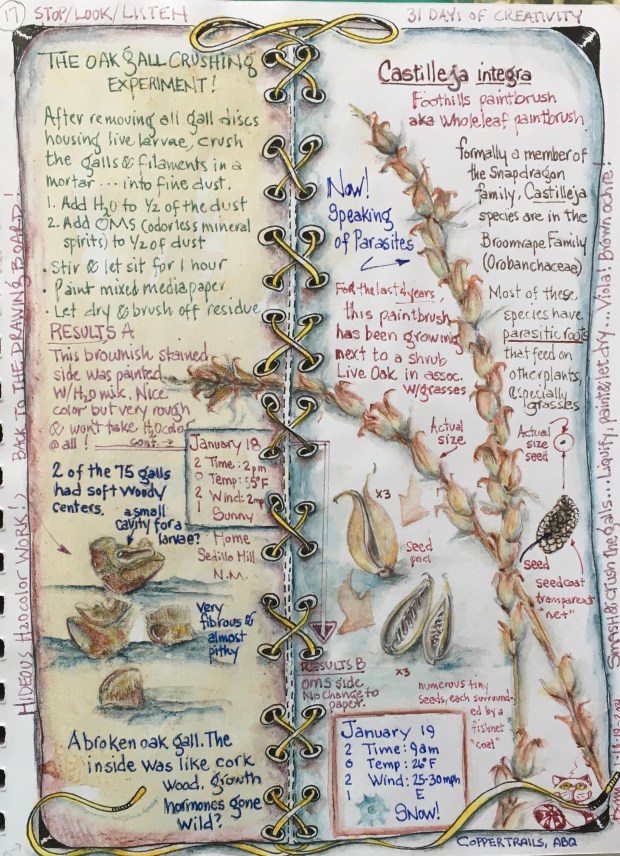 17 STOP/LOOK/LISTEN
31 DAYS OF CREATIVITY
THE OAK GALL CRUSHING
EXPERIMENT!
After removing all gall discs
housing live larvae, crush
the galls & filaments in a
mortar ... into fine dust.
1. Add H2O to 1/2 of the dust
2. Add OMS (odorless mineral
spirits) to 1/2 of dust
• Stir & let sit for 1 hour
• Paint mixed media paper
• Let dry & brush off residue
RESULTS A
This brownish stained
side was painted
w/H2O mix. Nice
color but very rough
& won't take H2Ocolor
@ all! cont.
January 18
2 Time: 2pm
0 Temp: 55°F
2 Wind: 2mph
1 Sunny
Home
Sedillo Hill
N.M.
2 of the 75 galls
had soft woody
centers.
a small
cavity for a
larvae?
Very
fibrous &
almost
pithy
A broken oak gall. The
inside was like cork
wood. growth
hormones gone
wild?
HIDEOUS H2OCOLOR WORK!) BACK TO THE DRAWING BOARD!
Castilleja integra
Foothills paintbrush
aka Wholeleaf paintbrush
formally a member of
the Snapdragon
family, Castilleja
species are in the
Broomrape Family
(Orobanchaceae)
Most of these
species have
parasitic roots
that feed on
other plants,
especially
grasses
Now!
Speaking
of Parasites
For the last 4 years,
this paintbrush
has been growing
next to a shrub
Live Oak in assoc.
w/grasses
Actual
size
Actual
size
seed
x3
seed
pod
seed
seedcoat
transparent
"net"
x3
numerous tiny
seeds, each surround-
ed by a
fishnet
"coat"
RESULTS B
OMS side
No change to
paper.
January 19
2 Time: 9am
0 Temp: 26°F
2 Wind: 25-30mph
1 E
Snow!
COPPERTRAILS, ABQ
Smash & crush the galls... Liquify; paint & let dry... Viola! Brown ochre!